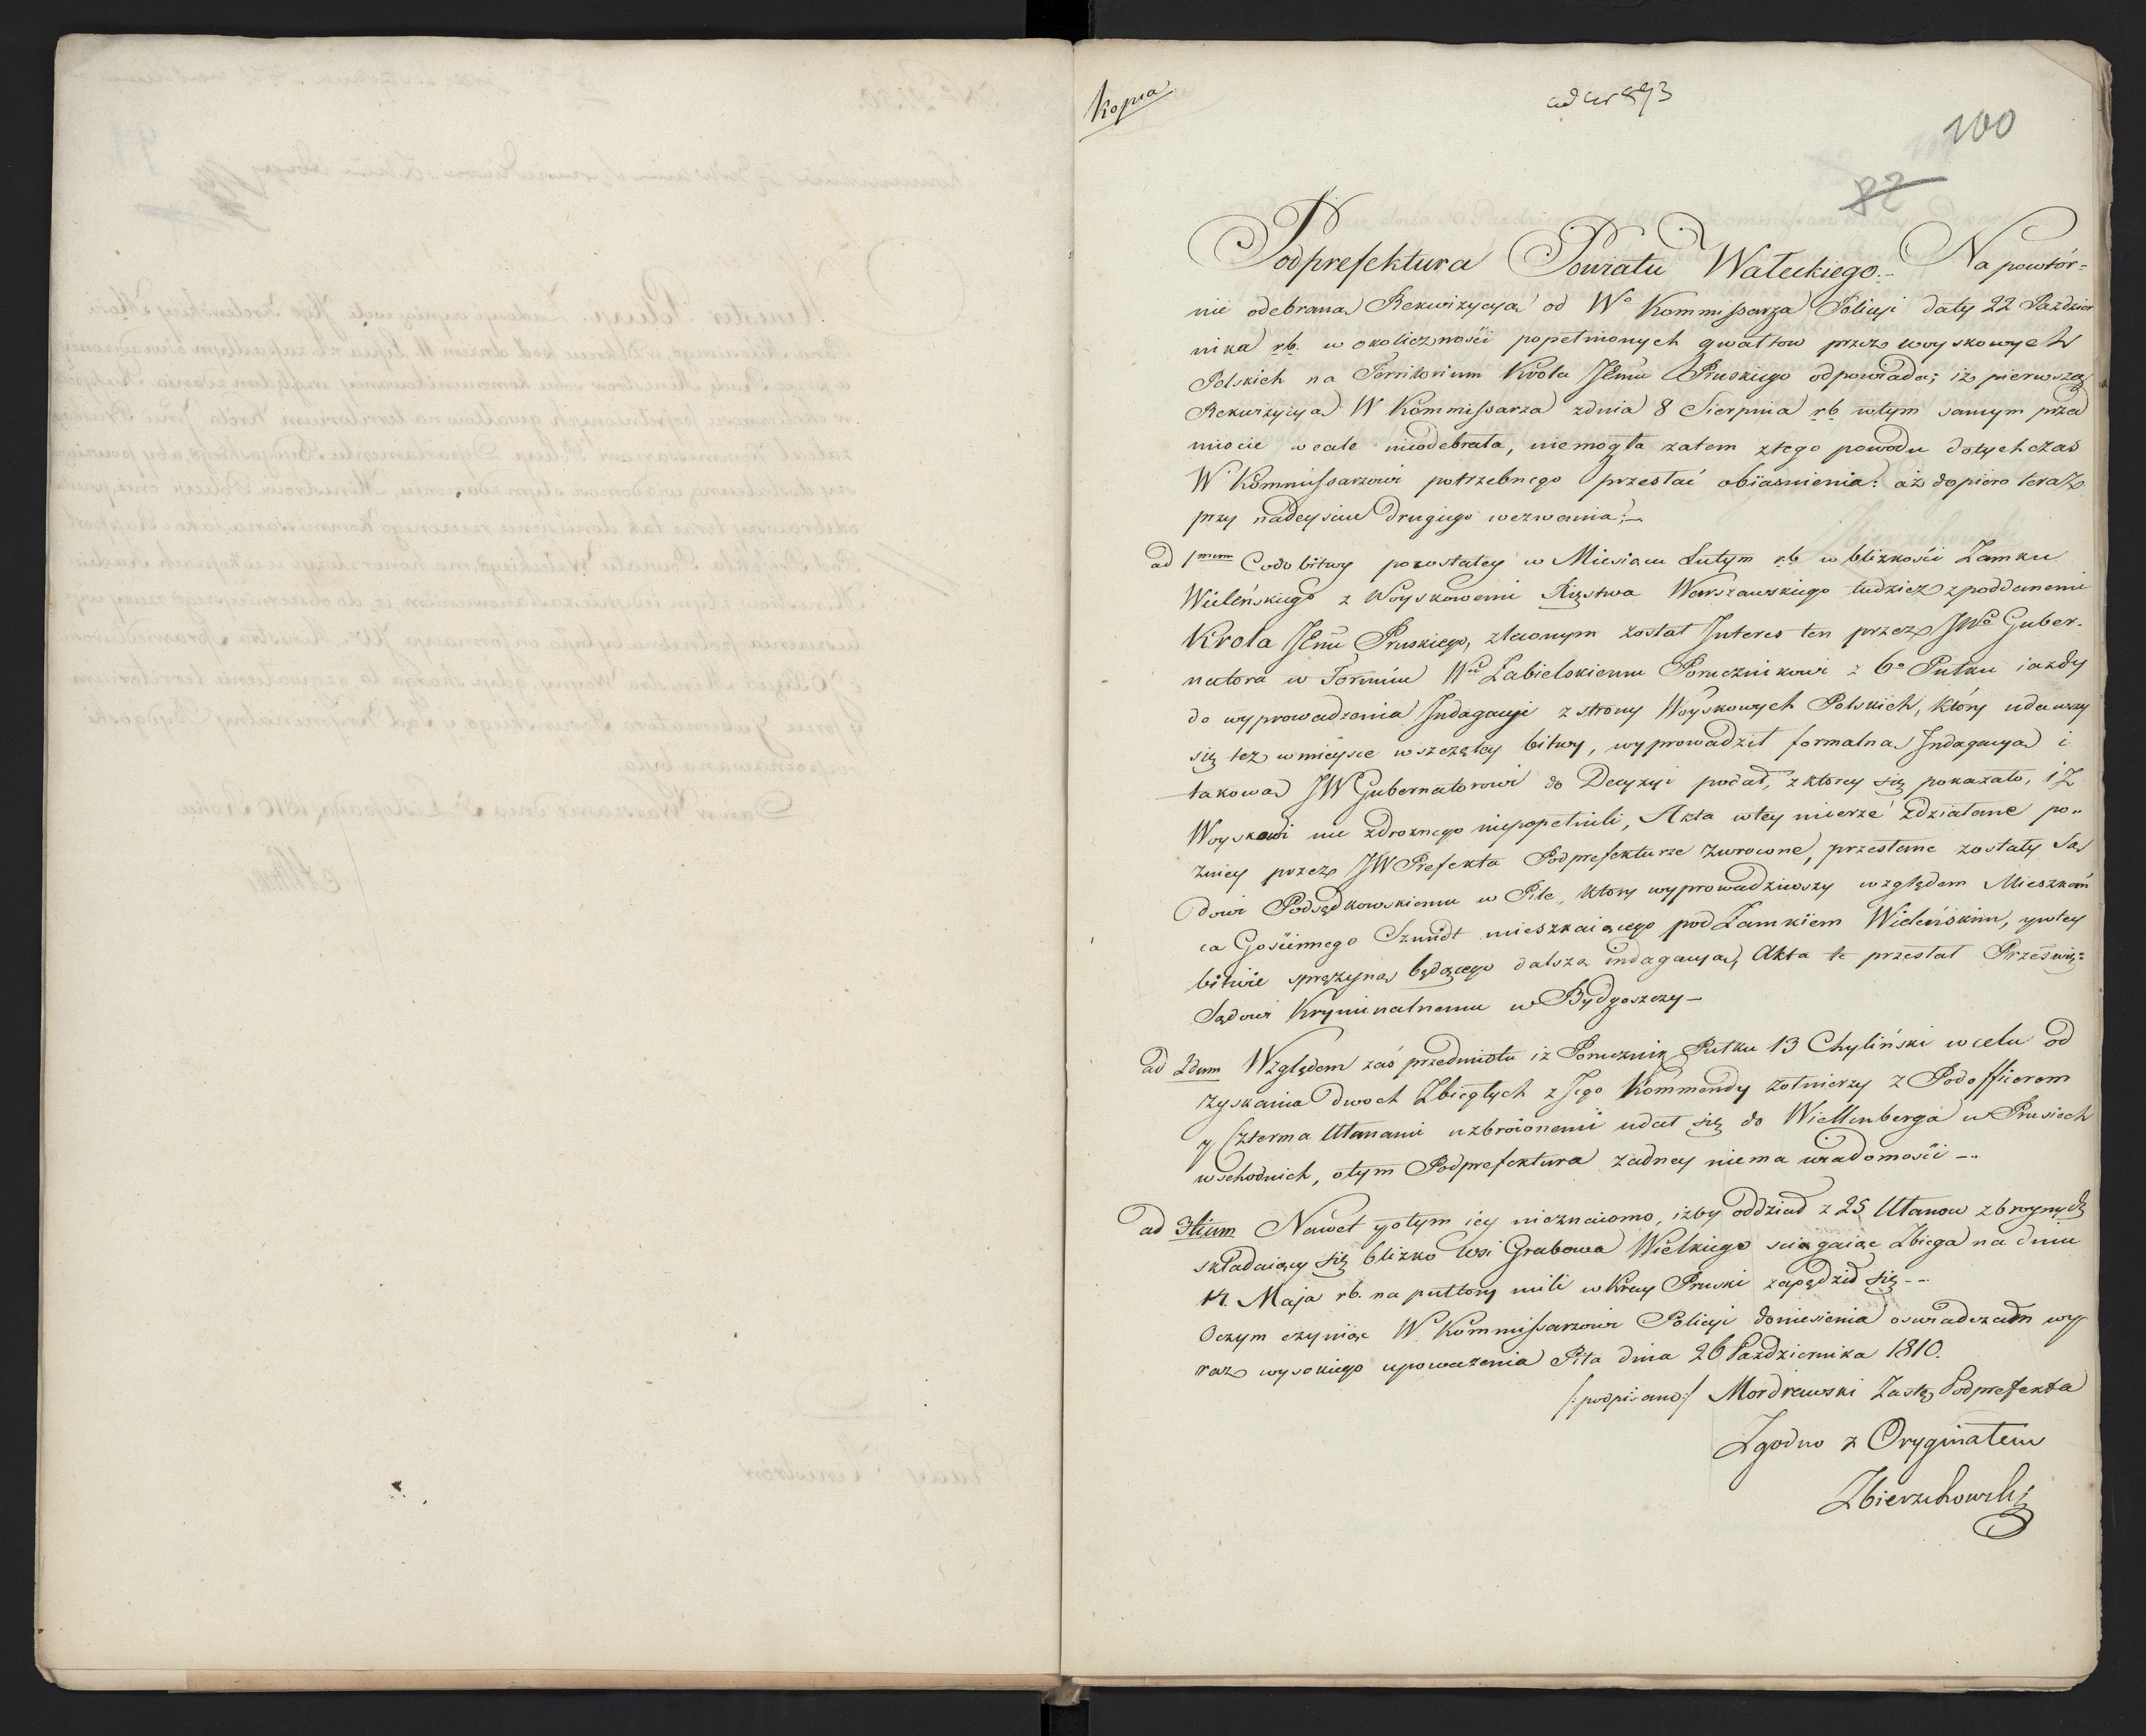 Kopia
ad Nr 893
100
82
Podprefektura Powiatu Wałeckiego.- Na powtór-
nie odebraną Rekwizycyą od Wo Kommissarza Policyi daty 22 Paździer
nika rb. w okoliczności popełnionych gwałtow przez woyskowych
Polskich na Territorium Krola JEmu Pruskiego odpowiada; iż pierwszą
Rekwizycyą W Kommissarza zdnia 8 Sierpnia rb wtym samym przed
miocie wcale nieodebrała, niemogła zatem ztego powodu dotychczas
W Kommissarzowi potrzebnego przesłać obiasnienia: aż dopiero teraz
przy nadeysciu drugiego wezwania;—
ad 1mum Codo bitwy pozostałey w Miesiącu Lutym rb w blizkości Zamku
Wieleńskiego z Woyskowemi Xięstwa Warszawskiego tudziez z poddanemi
Krola JEmu Pruskiego, zleconym został Interes ten przez JWo Guber-
natora w Toruniu Wu Zabielskiemu Porucznikowi z 6o Pułku iazdy
do wyprowadzenia Indagacyi z strony Woyskowych Polskich, który udawszy
się też w mieysce wszczętey bitwy, wyprowadził formalną Indagacyą i
takową JW Gubernatorowi do Decyzyi podał, z ktorey się pokazało, iż
Woyskowi nic zdrożnego niepopełnili, Akta wtey mierze zdziałane po-
zniey przez JW Prefekta Podprefekturze zwrocone, przesłane zostały Są
dowi Podsędkowskiemu w Pile, ktory wyprowadziwszy względem Mieszkań
ca Gościnnego Szmidt mieszkaiącego pod Zamkiem Wieleńskim, y wtey
bitwie sprężyną będącego dalszą indagacyą, Akta te przesłał Prześwię:
Sądowi Kryminalnemu w Bydgoszczy—
ad 2dum Względem zaś przedmiotu iż Porucznik Pułku 13 Chyliński w celu od
zyskania dwoch Zbiegłych z Jego Kommendy żołnierzy z Podofficerem
y Czterma Ułanami uzbroionemi udał się do Wiellenberga w Prusiech
wschodnich, otym Podprefektura żadney niema wiadomości —.
ad 3tium Nawet y otym iey nieznaiomo, izby oddział z 25 Ułanow zbroynych
składaiący się blizko Wsi Grabowa Wielkiego sciągaiąc Zbiega na dniu
14. Maja rb. na pułtory mili w Kray Pruski zapędził się --
Oczym czyniąc W Kommissarzowi Policyi doniesienia oswiadczam wy
raz wysokiego upoważenia Piła dnia 26 Października 1810.
/:podpisano:/ Mordrawski Zastę. Podprefekta
Zgodno z Oryginałem
Zbierzchowski